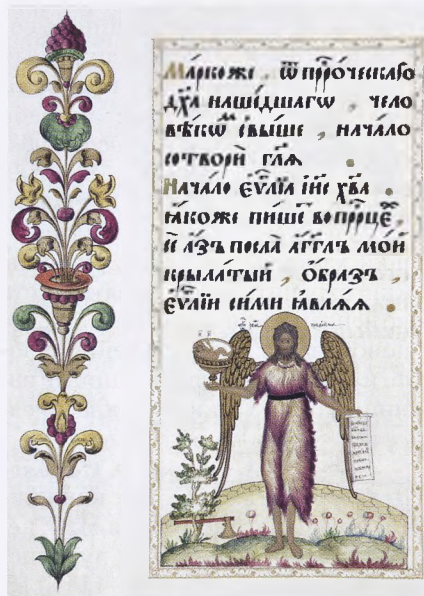 Марко же ѿ прⷪ҇ро́ческагѡ
дх҃а наше́дшагѡ чело
вѣ́кѡⷨ свы́ше , нача́ло
сотворѝ гл҃ѧ .
Нача́ло є҆ѵⷢ҇лїѧ і҆и҃с хв҃а .
ꙗ҆́коже пи́шеⷮ во прⷪ҇ро́цѣⷯ ,
се а҆́зъ посла̀ а҆́гг҃лъ мо́й
крыла́тый , ѡ҆́бразъ ,
є҆ѵⷢ҇лїи си́ми ꙗ҆влѧ́ѧ .